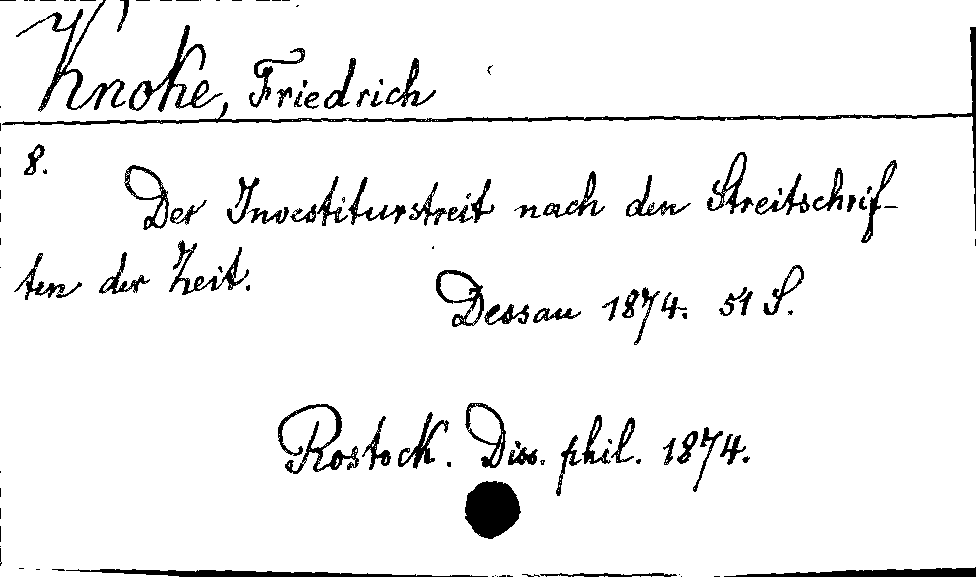 Knoke, Friedrich
8.
Der Investiturstreit nach den Streitschrif-
ten der Zeit.
Dessau 1874. 51 S.
Rostock. Diss. phil. 1874.